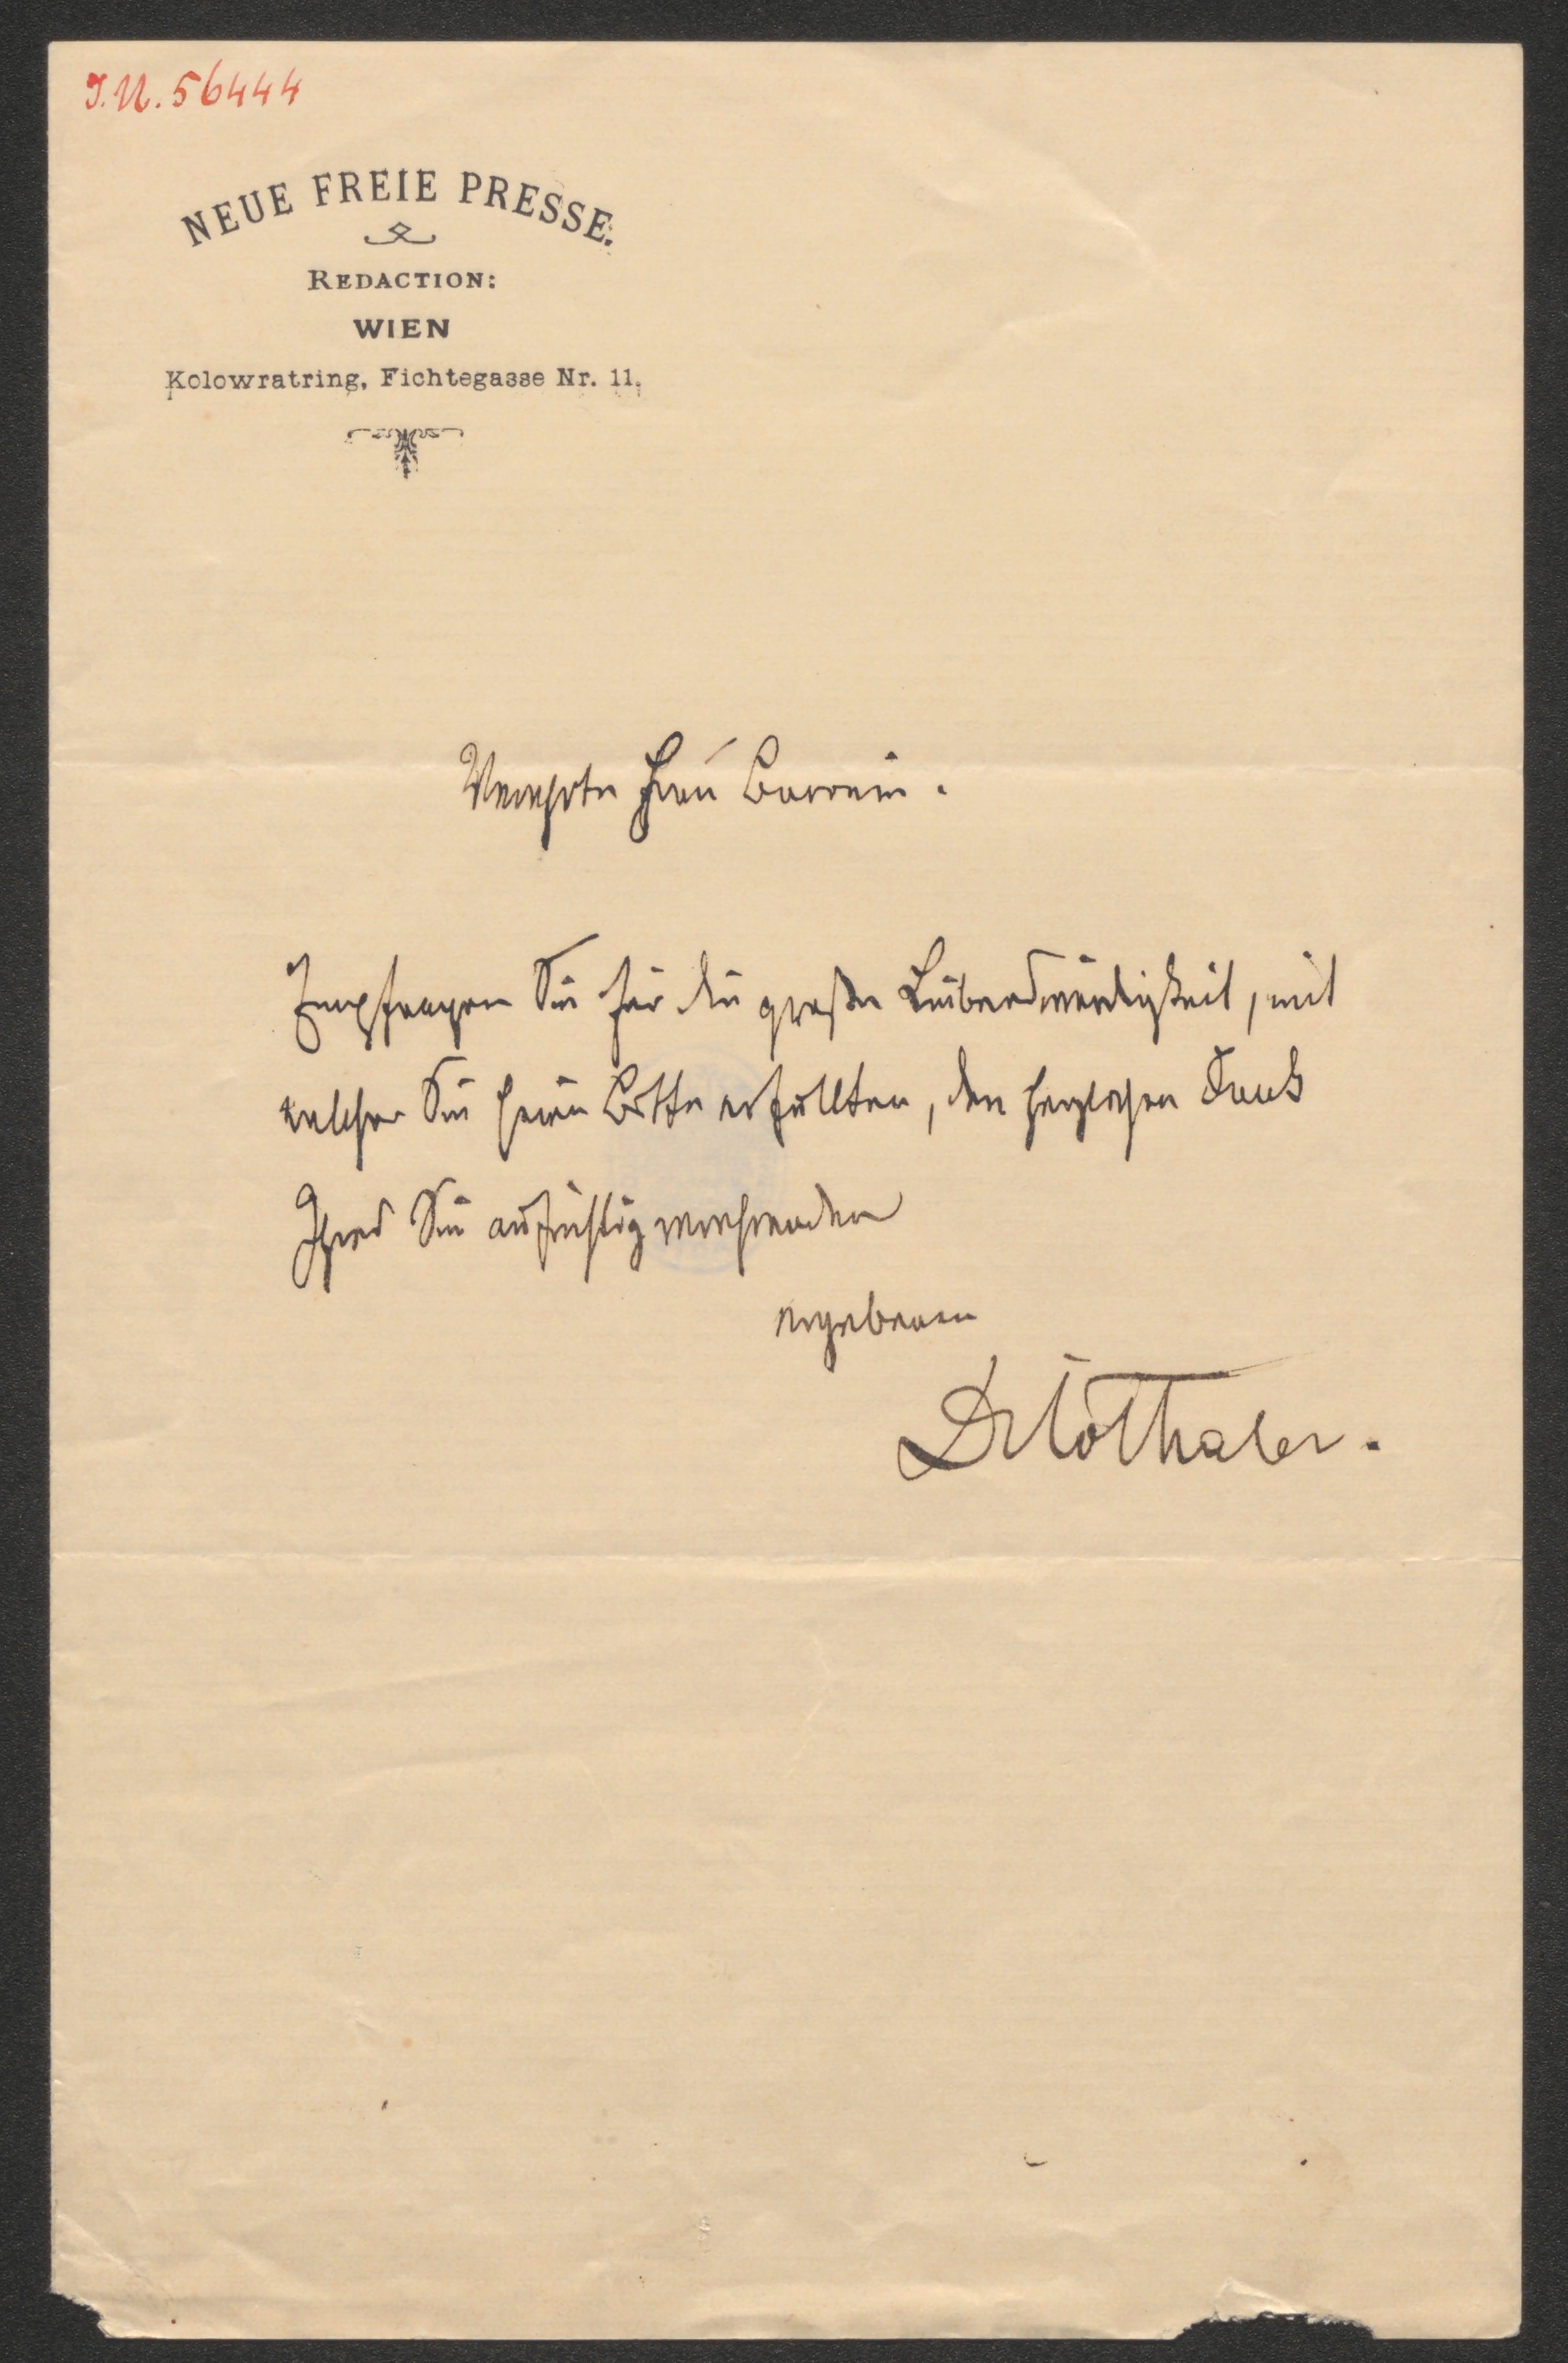 I.N. 56444
NEUE FREIE PRESSE.
REDACTION:
WIEN
Kolowratring, Fichtegasse Nr. 11.
Verehrte Frau Baronin.
Empfangen Sie für die große Liebenswürdigkeit, mit
welcher Sie Bitte erfüllten, den herzlichen Dank
Ihres Sie aufrichtig verehrenden
ergebenen